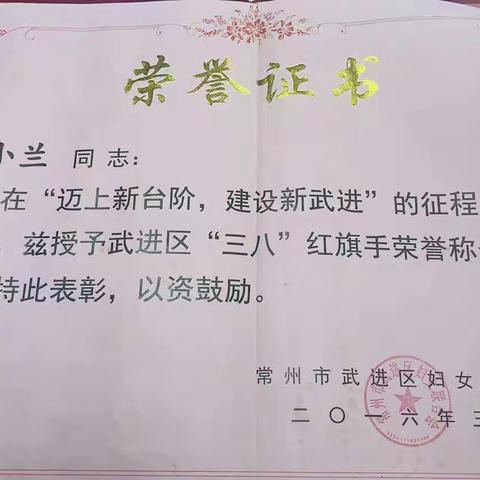 荣誉证书
小兰 同志：
在“迈上新台阶，建设新武进”的征程
兹授予武进区“三八”红旗手荣誉称
特此表彰，以资鼓励。
常州市武进区妇女
二〇一六年三